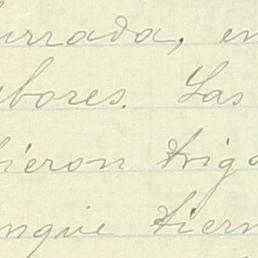 urrada, en
bores. Las
ieron trigo
nque tiern